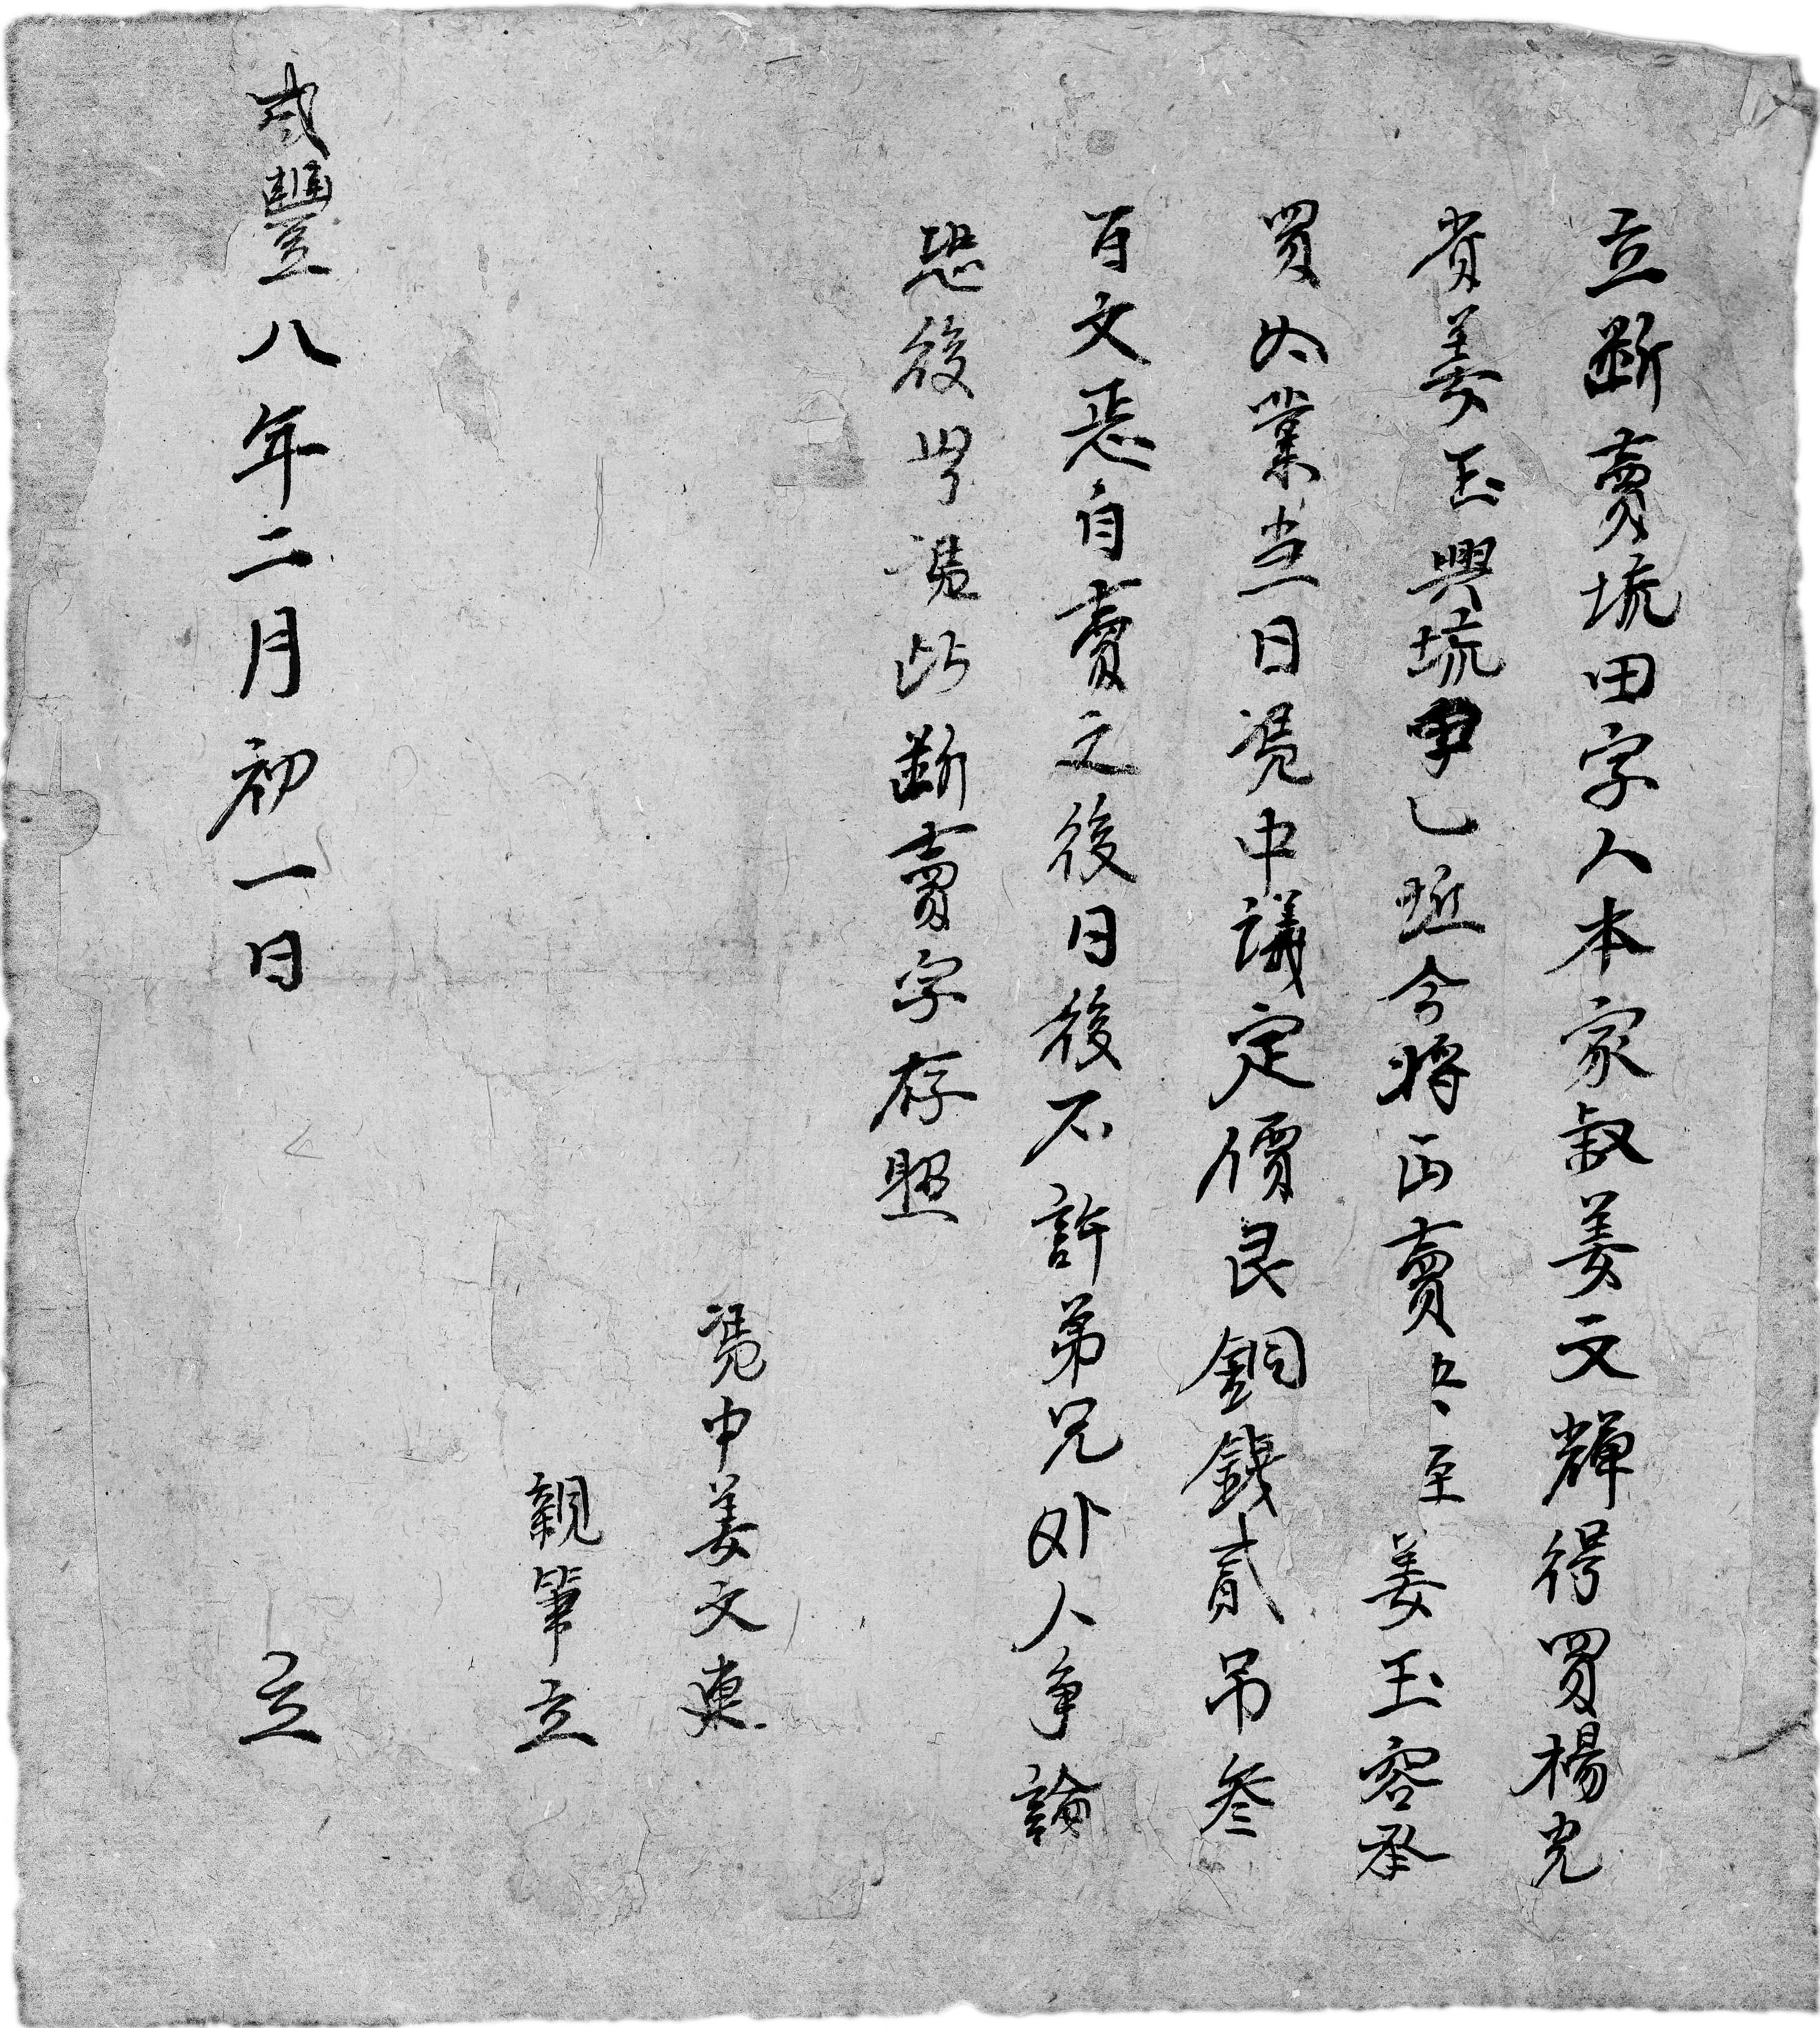 立斷賣坑田字人本家叔姜文輝得買楊光
肖姜玉興坑田乙坵今將出賣與至姜玉容承
買為業當日憑中議定價艮銅錢貳吊叁
百文悉自賣之後日後不許弟兄外人争論
恐後無憑此斷賣字存照
憑中姜文東
親筆立
咸豐八年二月初一日 立